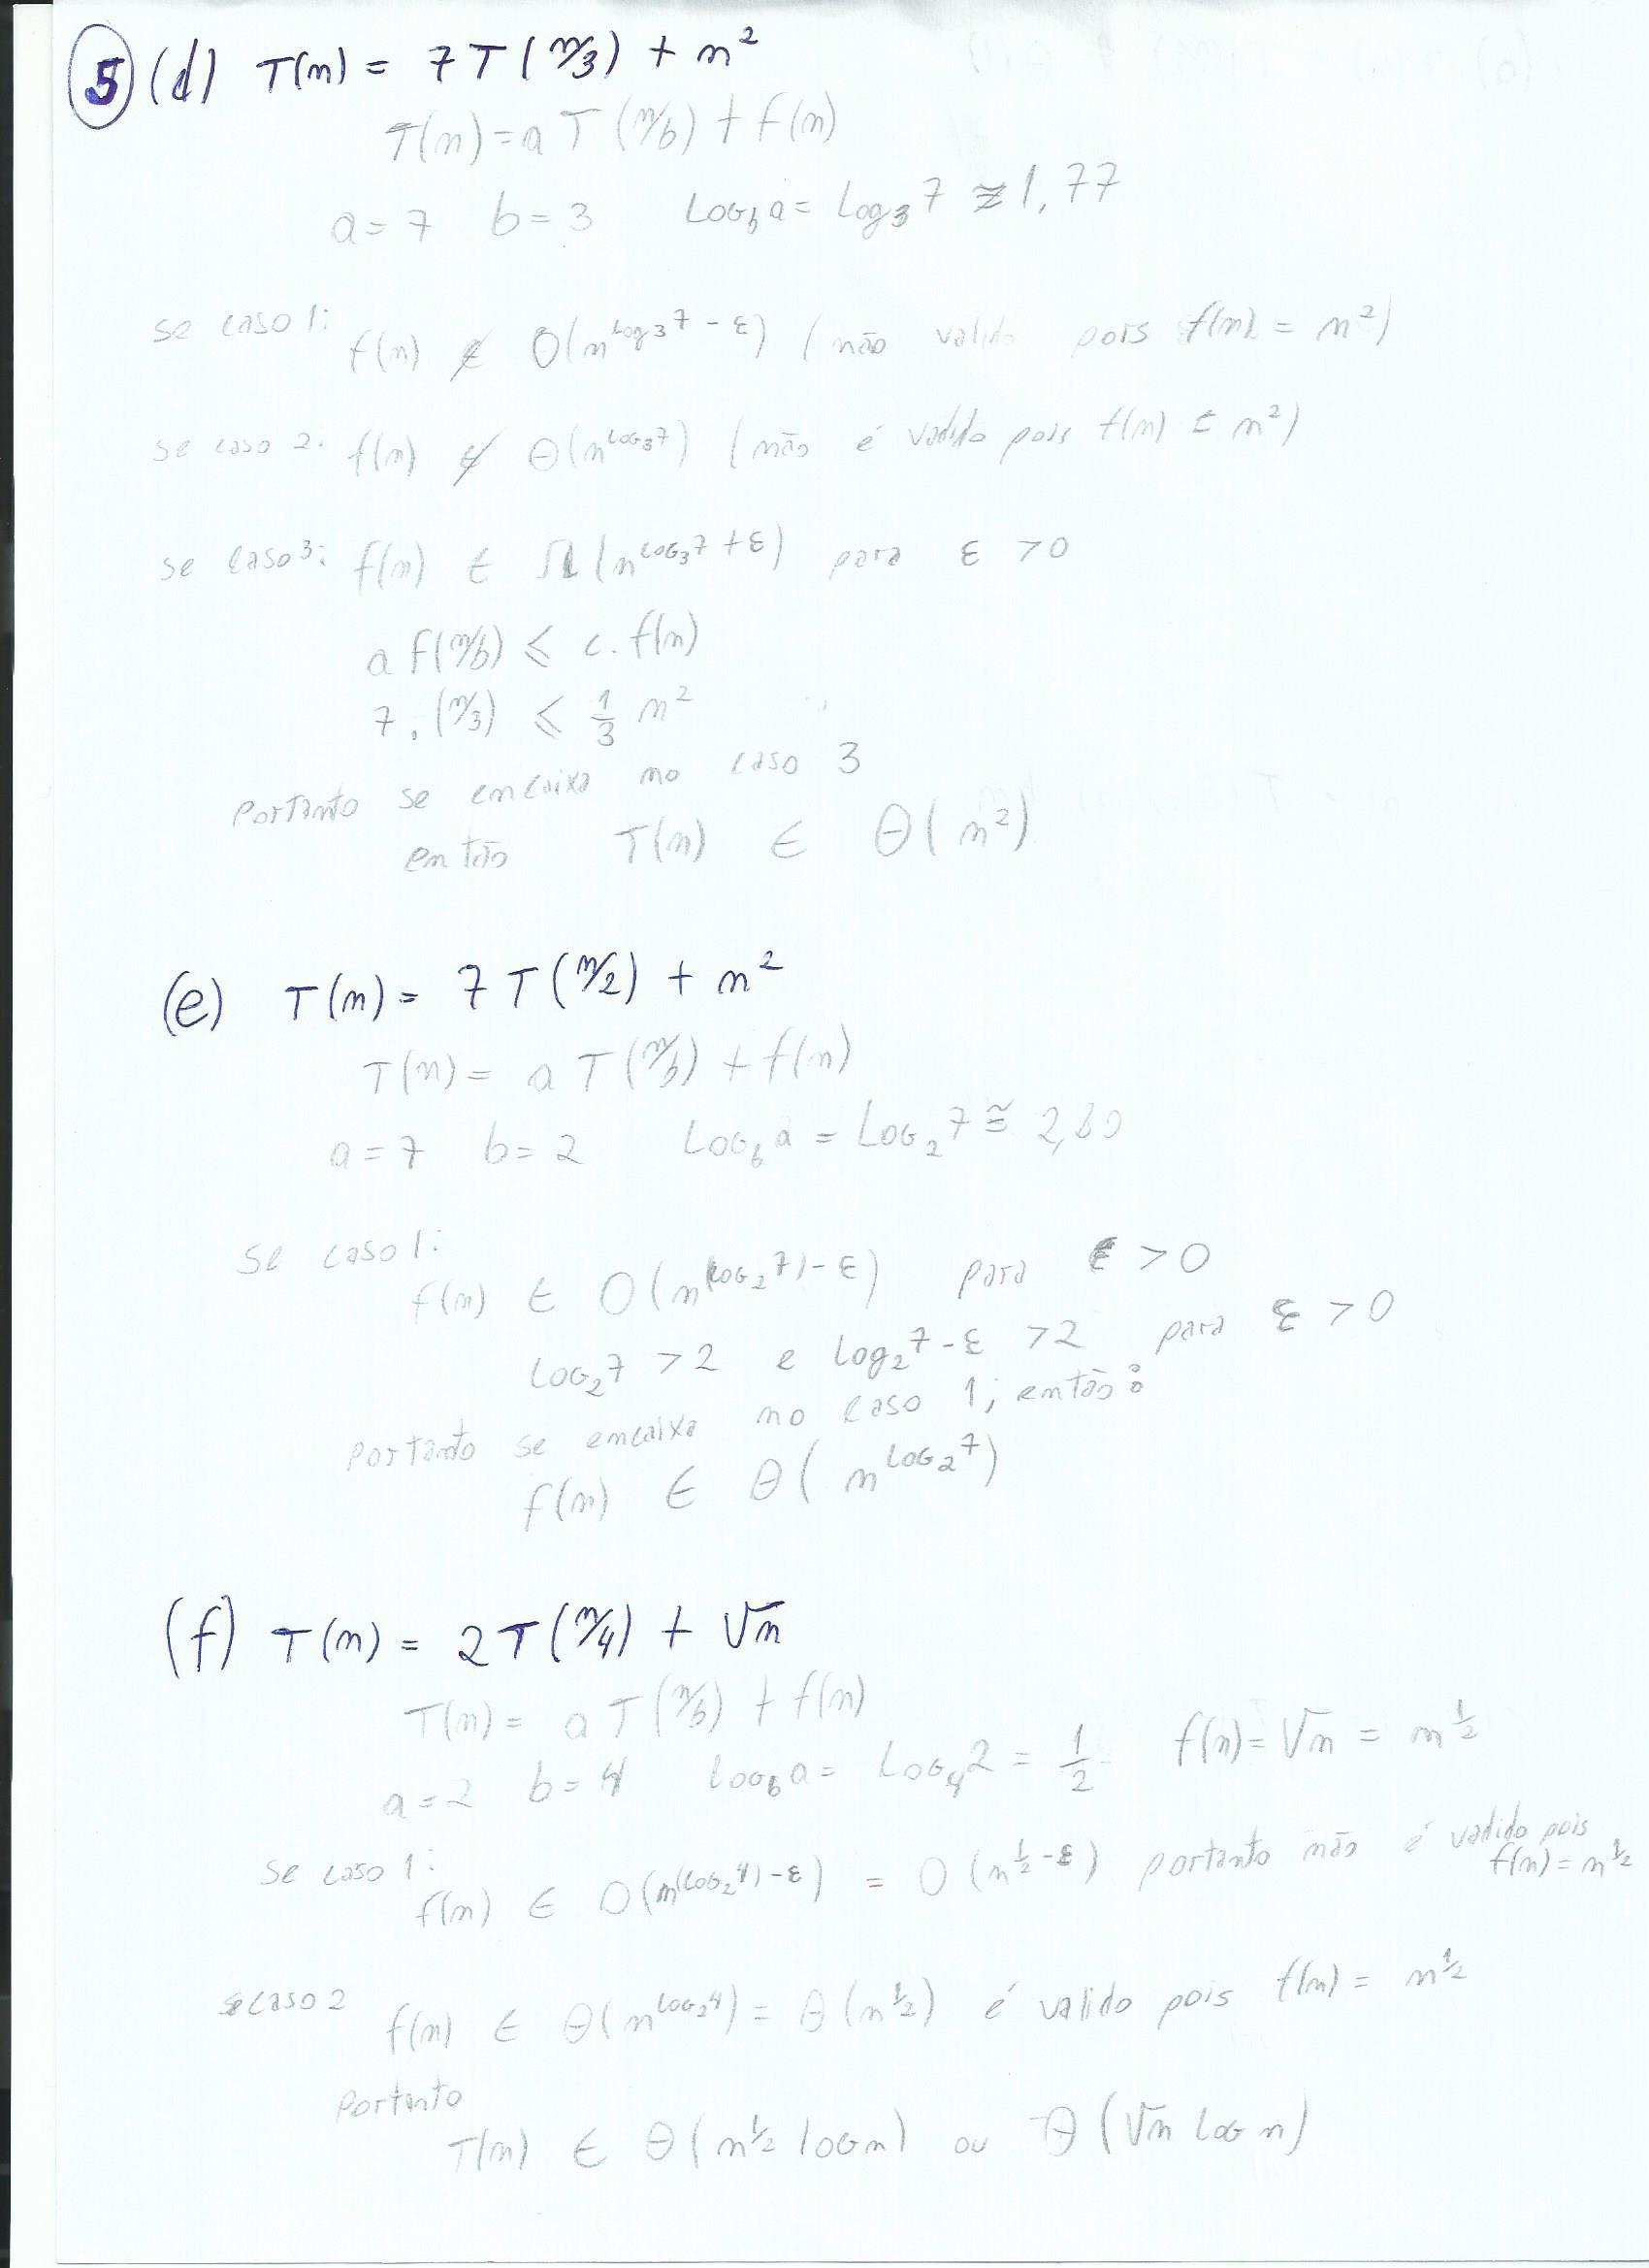 5 (d) T(n) = 7T(n/3) + n²
T(n) = a T(n/b) + f(n)
a = 7 b = 3 Log_b a = Log_3 7 ≅ 1,77
se caso 1: f(n) ∉ O(n^(Log_3 7 - ε)) (não valido pois f(n) = n²)
se caso 2: f(n) ∉ Θ(n^(Log_3 7)) (não é valido pois f(n) = n²)
se caso 3: f(n) ∈ Ω(n^(Log_3 7 + ε)) para ε > 0
a f(n/b) ≤ c. f(n)
7. (n/3) ≤ 1/3 n²
Portanto se encaixa no caso 3
então T(n) ∈ Θ(n²)
(e) T(n) = 7T(n/2) + n²
T(n) = a T(n/b) + f(n)
a = 7 b = 2 Log_b a = Log_2 7 ≅ 2,80
Se caso 1:
f(n) ∈ O(n^((Log_2 7) - ε)) para ε > 0
Log_2 7 > 2 e Log_2 7 - ε > 2 para ε > 0
Portanto se encaixa no caso 1, então:
f(n) ∈ Θ(n^(Log_2 7))
(f) T(n) = 2T(n/4) + √n
T(n) = a T(n/b) + f(n)
a = 2 b = 4 Log_b a = Log_4 2 = 1/2 f(n) = √n = n^(1/2)
Se caso 1:
f(n) ∈ O(n^((Log_2 4) - ε)) = O(n^(1/2 - ε)) portanto não é valido pois f(n) = n^(1/2)
se caso 2 f(n) ∈ Θ(n^(Log_2 4)) = Θ(n^(1/2)) é valido pois f(n) = n^(1/2)
Portanto
T(n) ∈ Θ(n^(1/2) Log n) ou Θ(√n Log n)